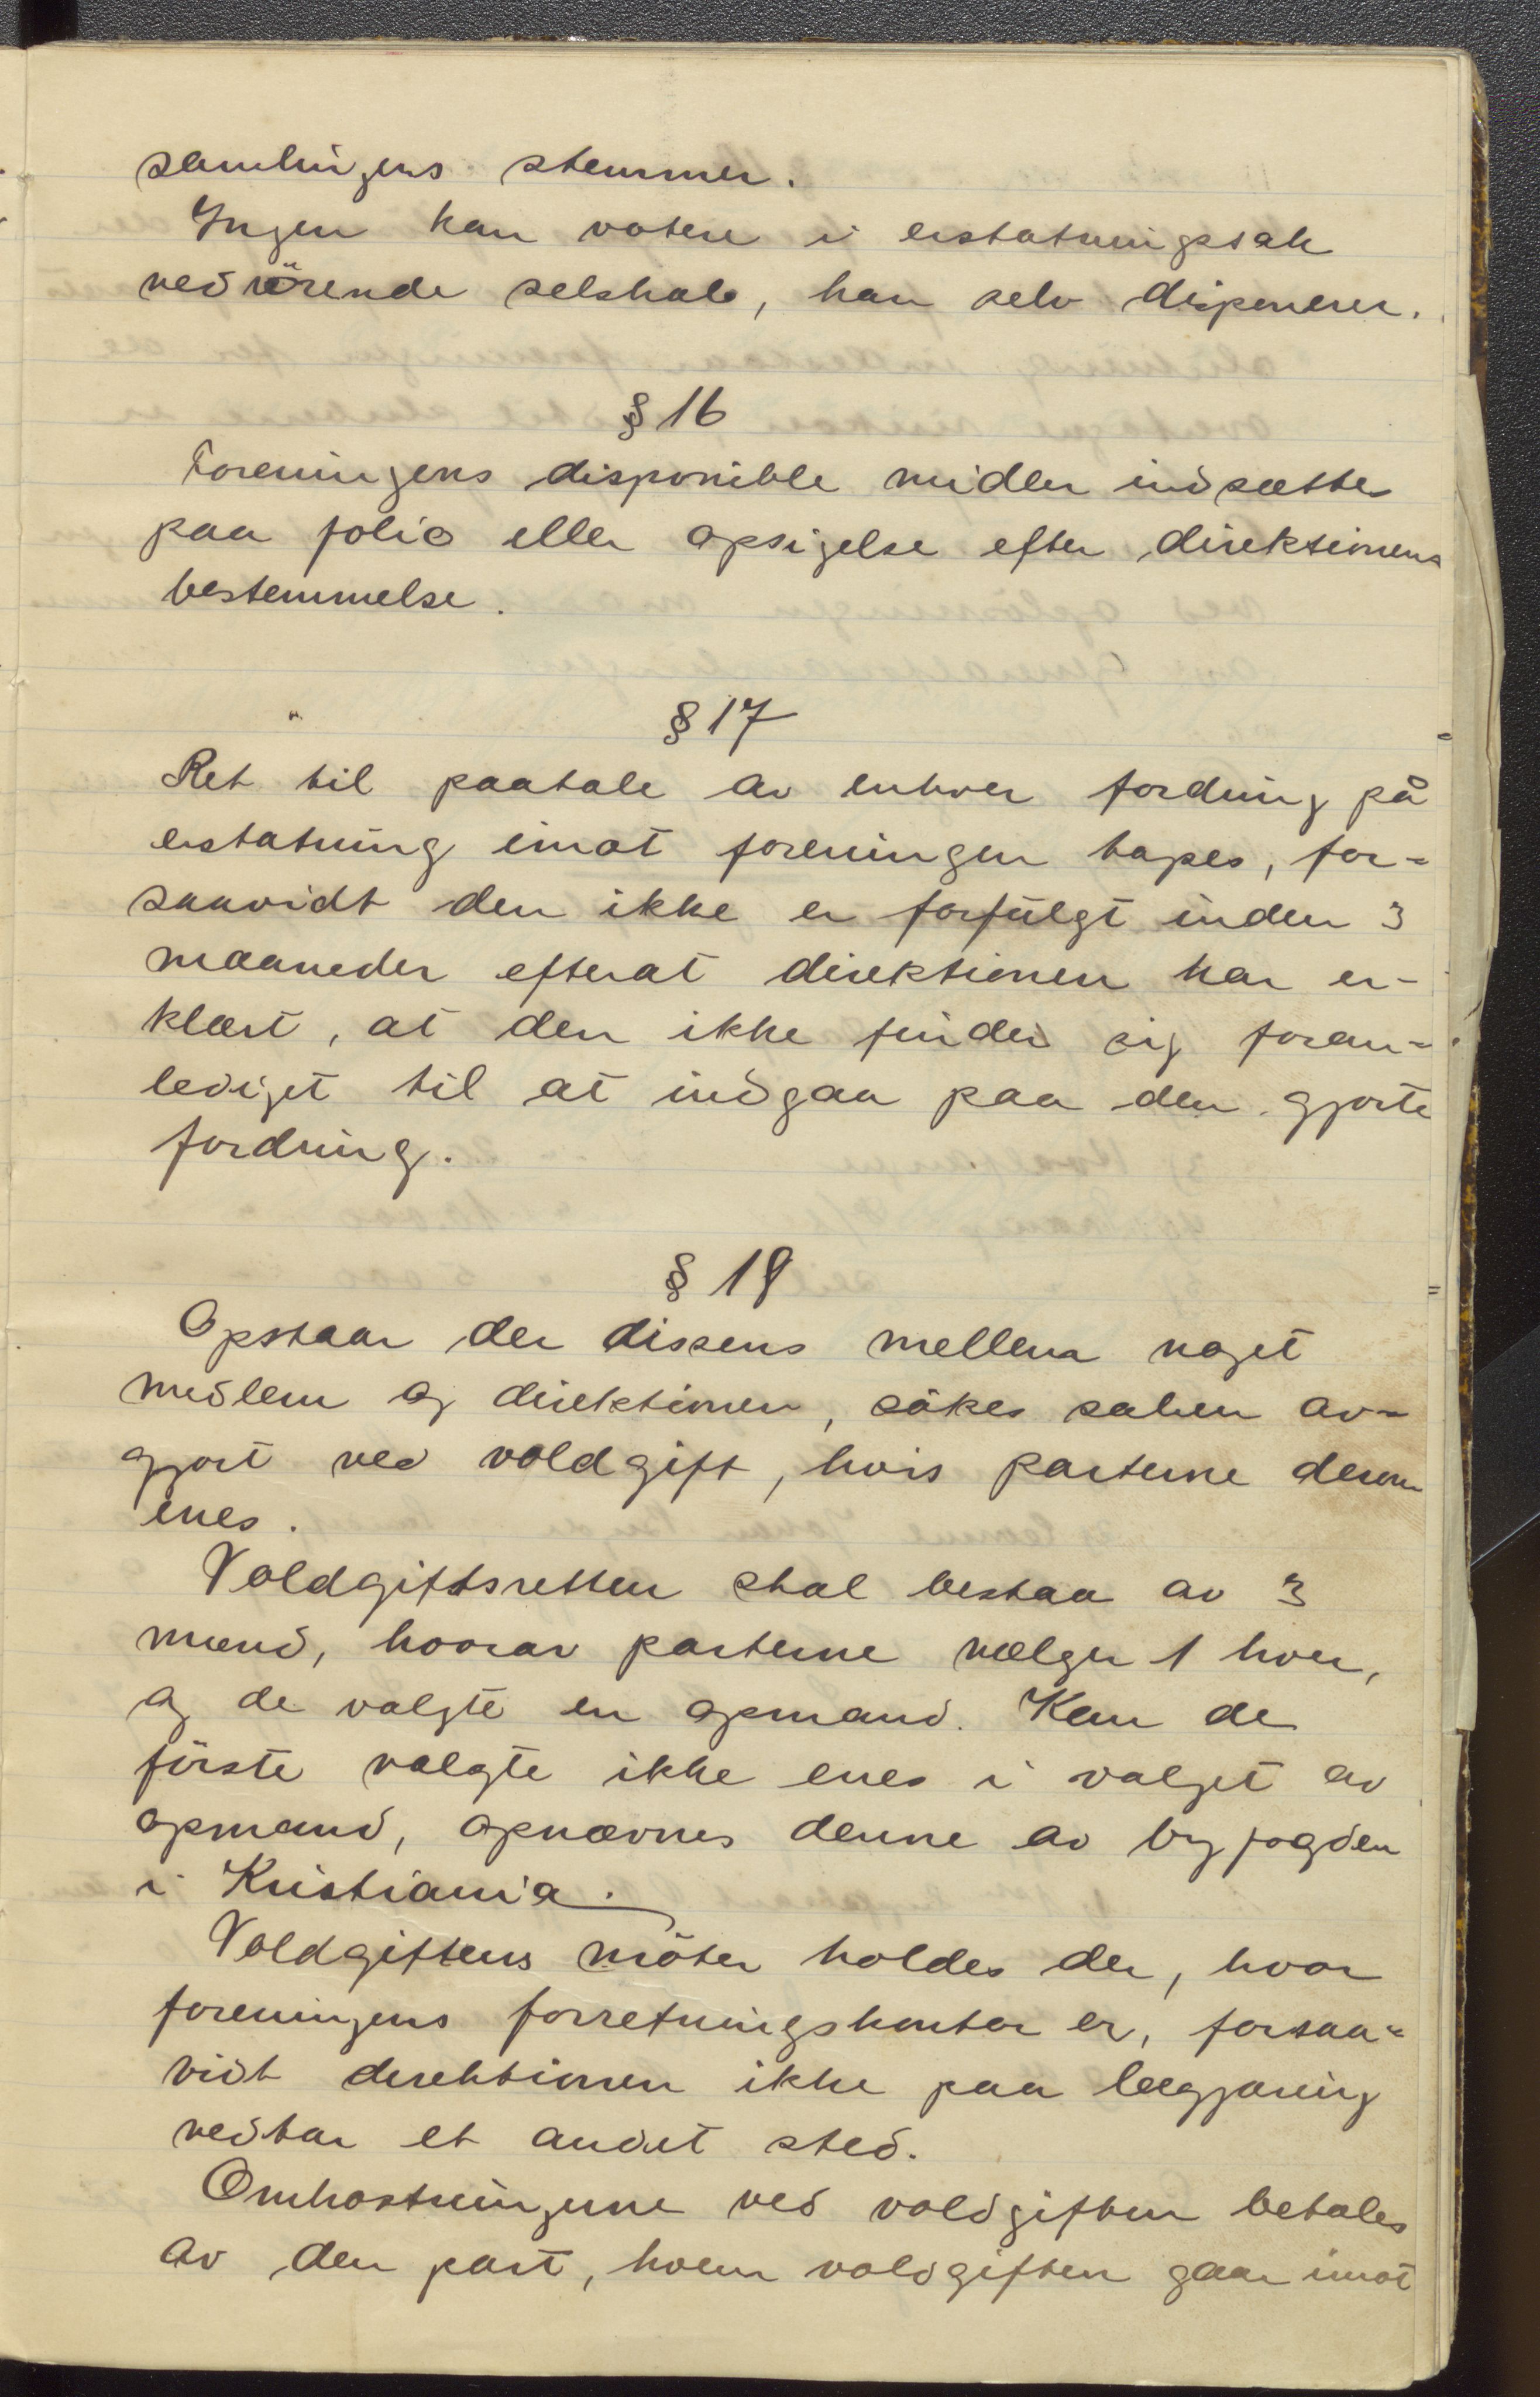 samlingens stemmer.
Ingen kan votere i erstatningssak
vedrörende selskab, han selv disponerer.
§ 16
Foreningens disponible midler indsættes
paa folio eller opsigelse efter direktionens
bestemmelse.
§ 17
Ret til paatale av enhver fordring på
erstatning imot foreningen tapes, for=
saavidt den ikke er forfulgt inden 3
maaneder efterat direktionen har er-
klært, at den ikke finder sig foran=
lediget til at indgaa paa den gjorte
fordring.
§ 18
Opstaar der dissens mellem noget
medlem og direktionen, sökes saken av=
gjort ved voldgift, hvis parterne derom
enes.
Voldgiftsretten skal bestaa av 3
mænd, hvorav parterne vælger 1 hver,
og de valgte en opmand. Kan de
förste valgte ikke enes i valget av
opmand, opnævnes denne av byfogden
i Kristiania.
Voldgiftens möter holdes der, hvor
foreningens forretningskontor er, forsaa=
vidt direktionen ikke paa begjæring
vedtar et andet sted.
Omkostningerne ved voldgiften betales
av den part, hvem voldgiften gaar imot